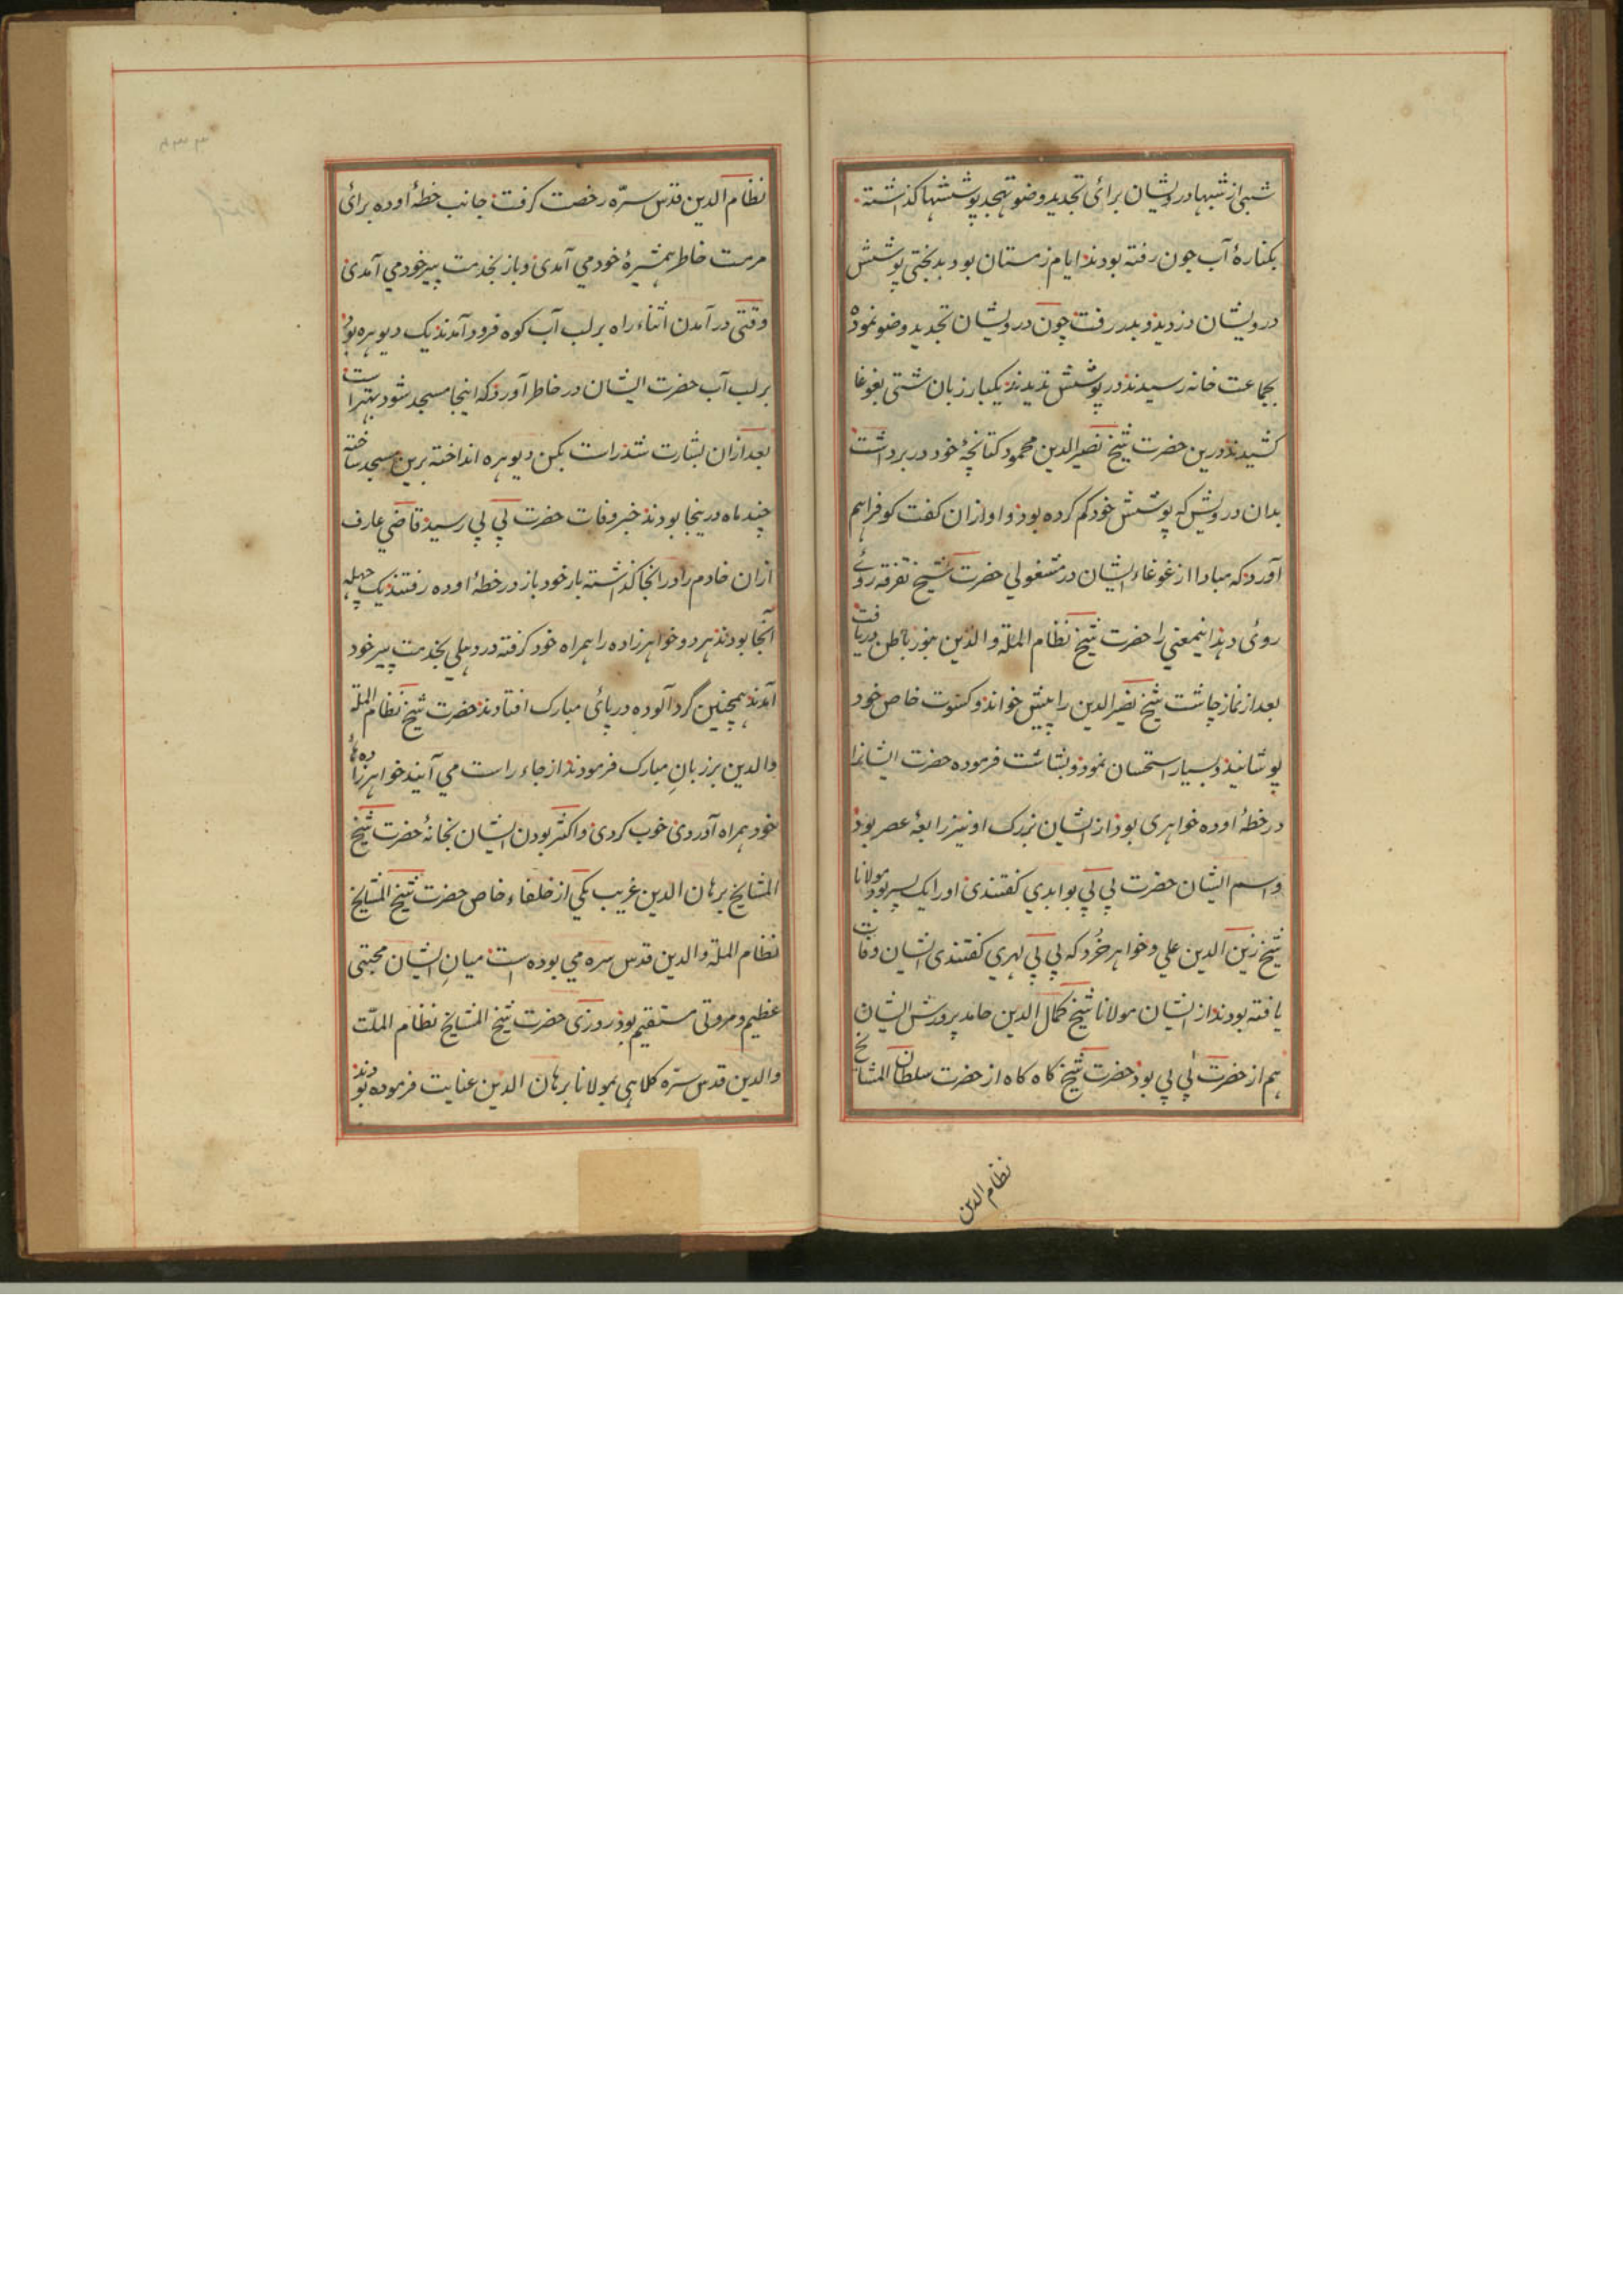 شبی از شبها درویشان برای تجدید وضو تهجد پوششها گذاشته
بکنارهٔ آب جون رفته بودند ایام زمستان بود بدبختی پوشش
درویشان دزدید و بدر رفت چون درویشان تجدید وضو نموده
بجماعت خانه رسیدند در پوشش ندیدند یکبار زبان شتی بغوغا
کشیدند درین حضرت شیخ نصیرالدین محمود کتانچهٔ خود در بر داشت
بدان درویش که پوشش خود کم کرده بود و اوازان کفت کو فراهم
آورد که مبادا از غوغاء ایشان در مشغولی حضرت شیخ تفرقه روئے
روی دهد اینمعنی را حضرت شیخ نظام الملة والدین بنور باطن دریافت
بعد از نماز چاشت شیخ نصیرالدین را پیش خواند و کسوت خاص خود
پوشانید و بسیار استحسان نمود و بشاشت فرموده حضرت ایشانرا
در خطهٔ اوده خواهری بود از ایشان بزرک او نیز رابعهٔ عصر بود
و اسم ایشان حضرت بی بی بوابدی کفتندی او را یک پسر بود مولانا
شیخ زین الدین علی و خواهر خُرد که بی بی لهری کفتندی ایشان وفات
یافته بودند از ایشان مولانا شیخ کمال الدین حامد پرورش ایشان
هم از حضرت بی بی بود حضرت شیخ کاه کاه از حضرت سلطان المشایخ
نظام الدین
نظام الدین قدس سرّه رخصت کرفت جانب خطهٔ اوده برای
مرمت خاطر همشیرهٔ خود می آمدی و باز بخدمت پیر خود می آمدی
وقتی در آمدن اثناء راه بر لب آب کوه فرود آمدند یک دیوهره بود
بر لب آب حضرت ایشان در خاطر آورد که اینجا مسجد شود بهتر است
بعد ازان بشارت شد راست بکن دیوهره انداخته برین مسجد ساخته
چند ماه درینجا بودند خبر وفات حضرت بی بی رسید قاضی عارف
ازان خادم را در انجا گذاشته بار خود باز در خطهٔ اوده رفتند یک چهله
آنجا بودند هر دو خواهرزاده را همراه خود کرفته در دهلی بخدمت پیر خود
آمدند همچنین گردآلوده در پائی مبارک افتادند حضرت شیخ نظام الملة
والدین بر زبانِ مبارک فرمودند از جاء راست می آیند خواهرزاده ها
خود همراه آوردی خوب کردی و اکثر بودن ایشان بخانهٔ حضرت شیخ
المشایخ برهان الدین غریب یکی از خلفاء خاص حضرت شیخ المشایخ
نظام الملة والدین قدس سره می بوده است میانِ ایشان محبتی
عظیم و مروتی مستقیم بود روزی حضرت شیخ المشایخ نظام الملّت
والدین قدس سرّه کلاهی بمولانا برهان الدین عنایت فرموده بودند